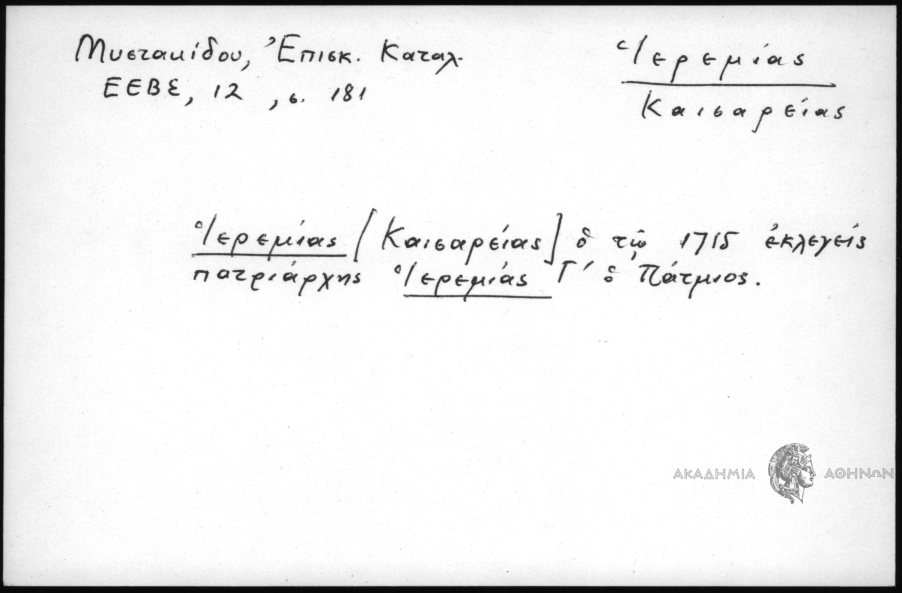 Μυστακίδου, Ἐπισκ. Καταλ.
ΕΕΒΣ, 12, σ. 181
Ἱερεμίας
Καισαρείας
Ἱερεμίας [Καισαρείας] ὁ τῷ 1715 ἐκλεγείς
πατριάρχης Ἱερεμίας Γ' ὁ Πάτμιος.
ΑΚΑΔΗΜΙΑ ΑΘΗΝΩΝ